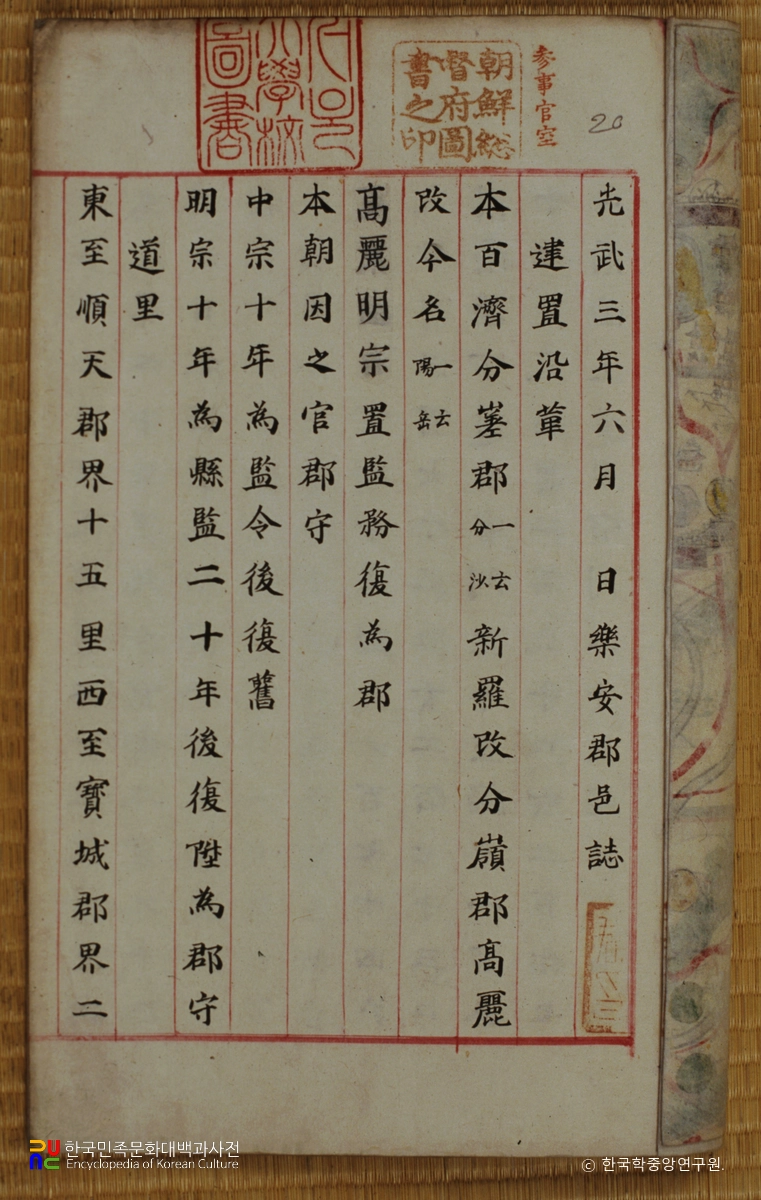 光武三年六月　日樂安郡邑誌
建置沿革
本百濟分嵳郡一云分沙新羅改分嶺郡高麗
改今名一云陽岳
高麗明宗置監務復為郡
本朝因之官郡守
中宗十年為監令後復舊
明宗十年為縣監二十年後復陞為郡守
道里
東至順天郡界十五里西至寶城郡界二
20
参事官室
朝鮮総督府圖書之印
大學校圖書
한국민족문화대백과사전
Encyclopedia of Korean Culture
© 한국학중앙연구원.